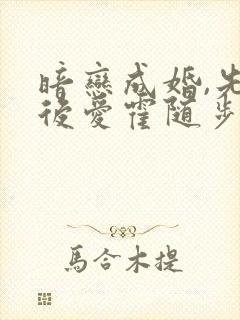 暗戀成婚,先
後愛霍随步
馬合木提